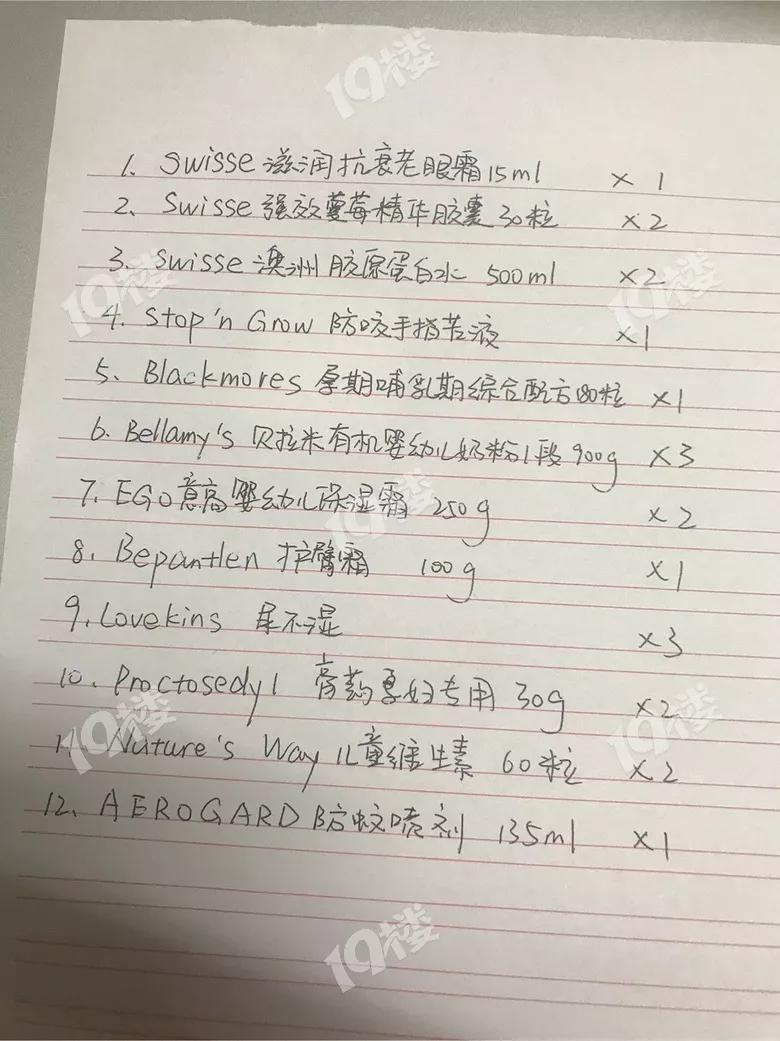 19楼
1、Swisse 滋润抗衰老眼霜15ml ×1
2、Swisse 强效蔓莓精华胶囊30粒 ×2
3、Swisse 澳洲胶原蛋白水 500ml ×2
19楼 19楼
4、Stop'n Grow 防咬手指苦液 ×1
5、Blackmores 孕期哺乳期综合配方180粒 ×1
6、Bellamy's 贝拉米有机婴幼儿奶粉1段 900g ×3
7、EGO意高婴幼儿保湿霜 250g ×2
8、Bepantlen 护臀霜 100g ×1
9、Lovekins 尿不湿 ×3
10、Proctosedyl 膏药孕妇专用 30g ×2
19楼 19楼
11、Nuture's Way 儿童维生素 60粒 ×2
12、AEROGARD 防蚊喷剂 135ml ×1
19楼